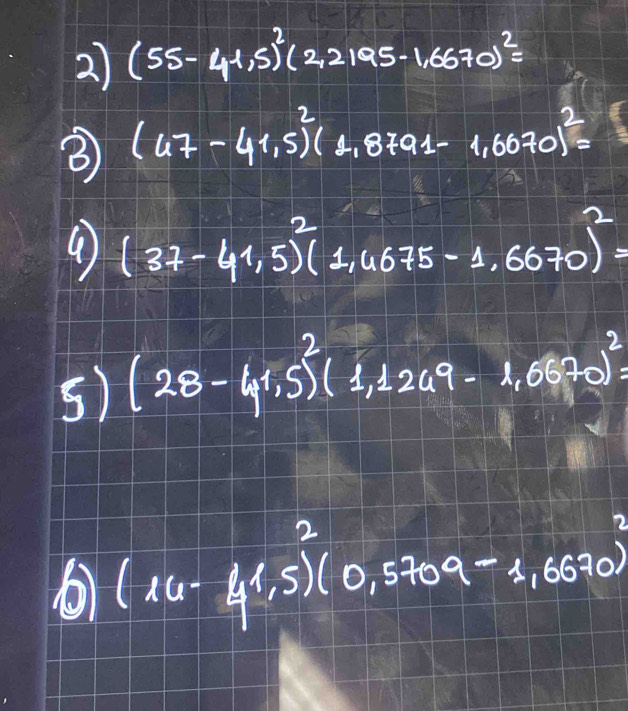 2) (55 - 41,5)² (2,2195 - 1,6670)² =
3) (47 - 41,5)² (1,8791 - 1,6670)² =
4) (37 - 41,5)² (1,4675 - 1,6670)² =
5) (28 - 41,5)² (1,1249 - 1,6670)² =
6) (14 - 41,5)² (0,5709 - 1,6670)²